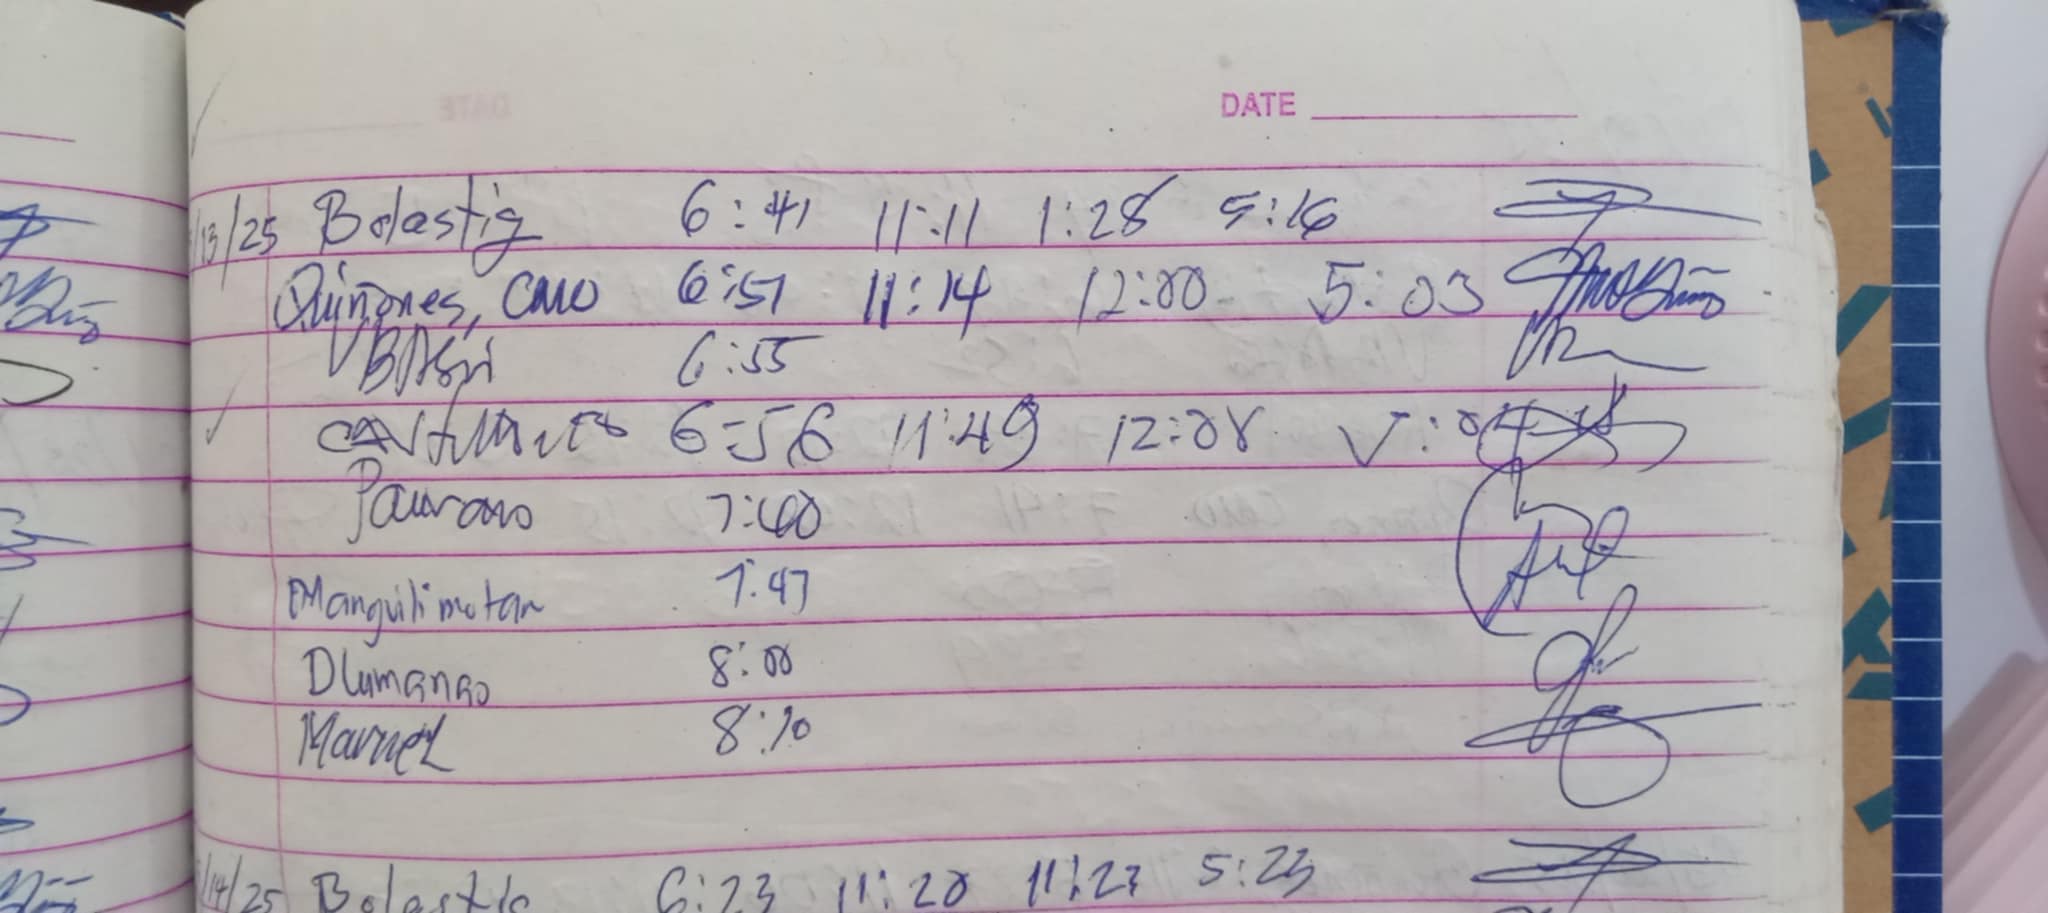 DATE
/13/25 Bolastig 6:41 11:11 1:28 5:16
Quiñones, CMO 6:51 11:14 12:00 5:03
6:55
6:56 11:49 12:08 5:04
7:40
Manguilimotan 7:47
Dlumanao 8:00
Marnel 8:10
/14/25 Bolastig 6:23 11:20 11:23 5:23